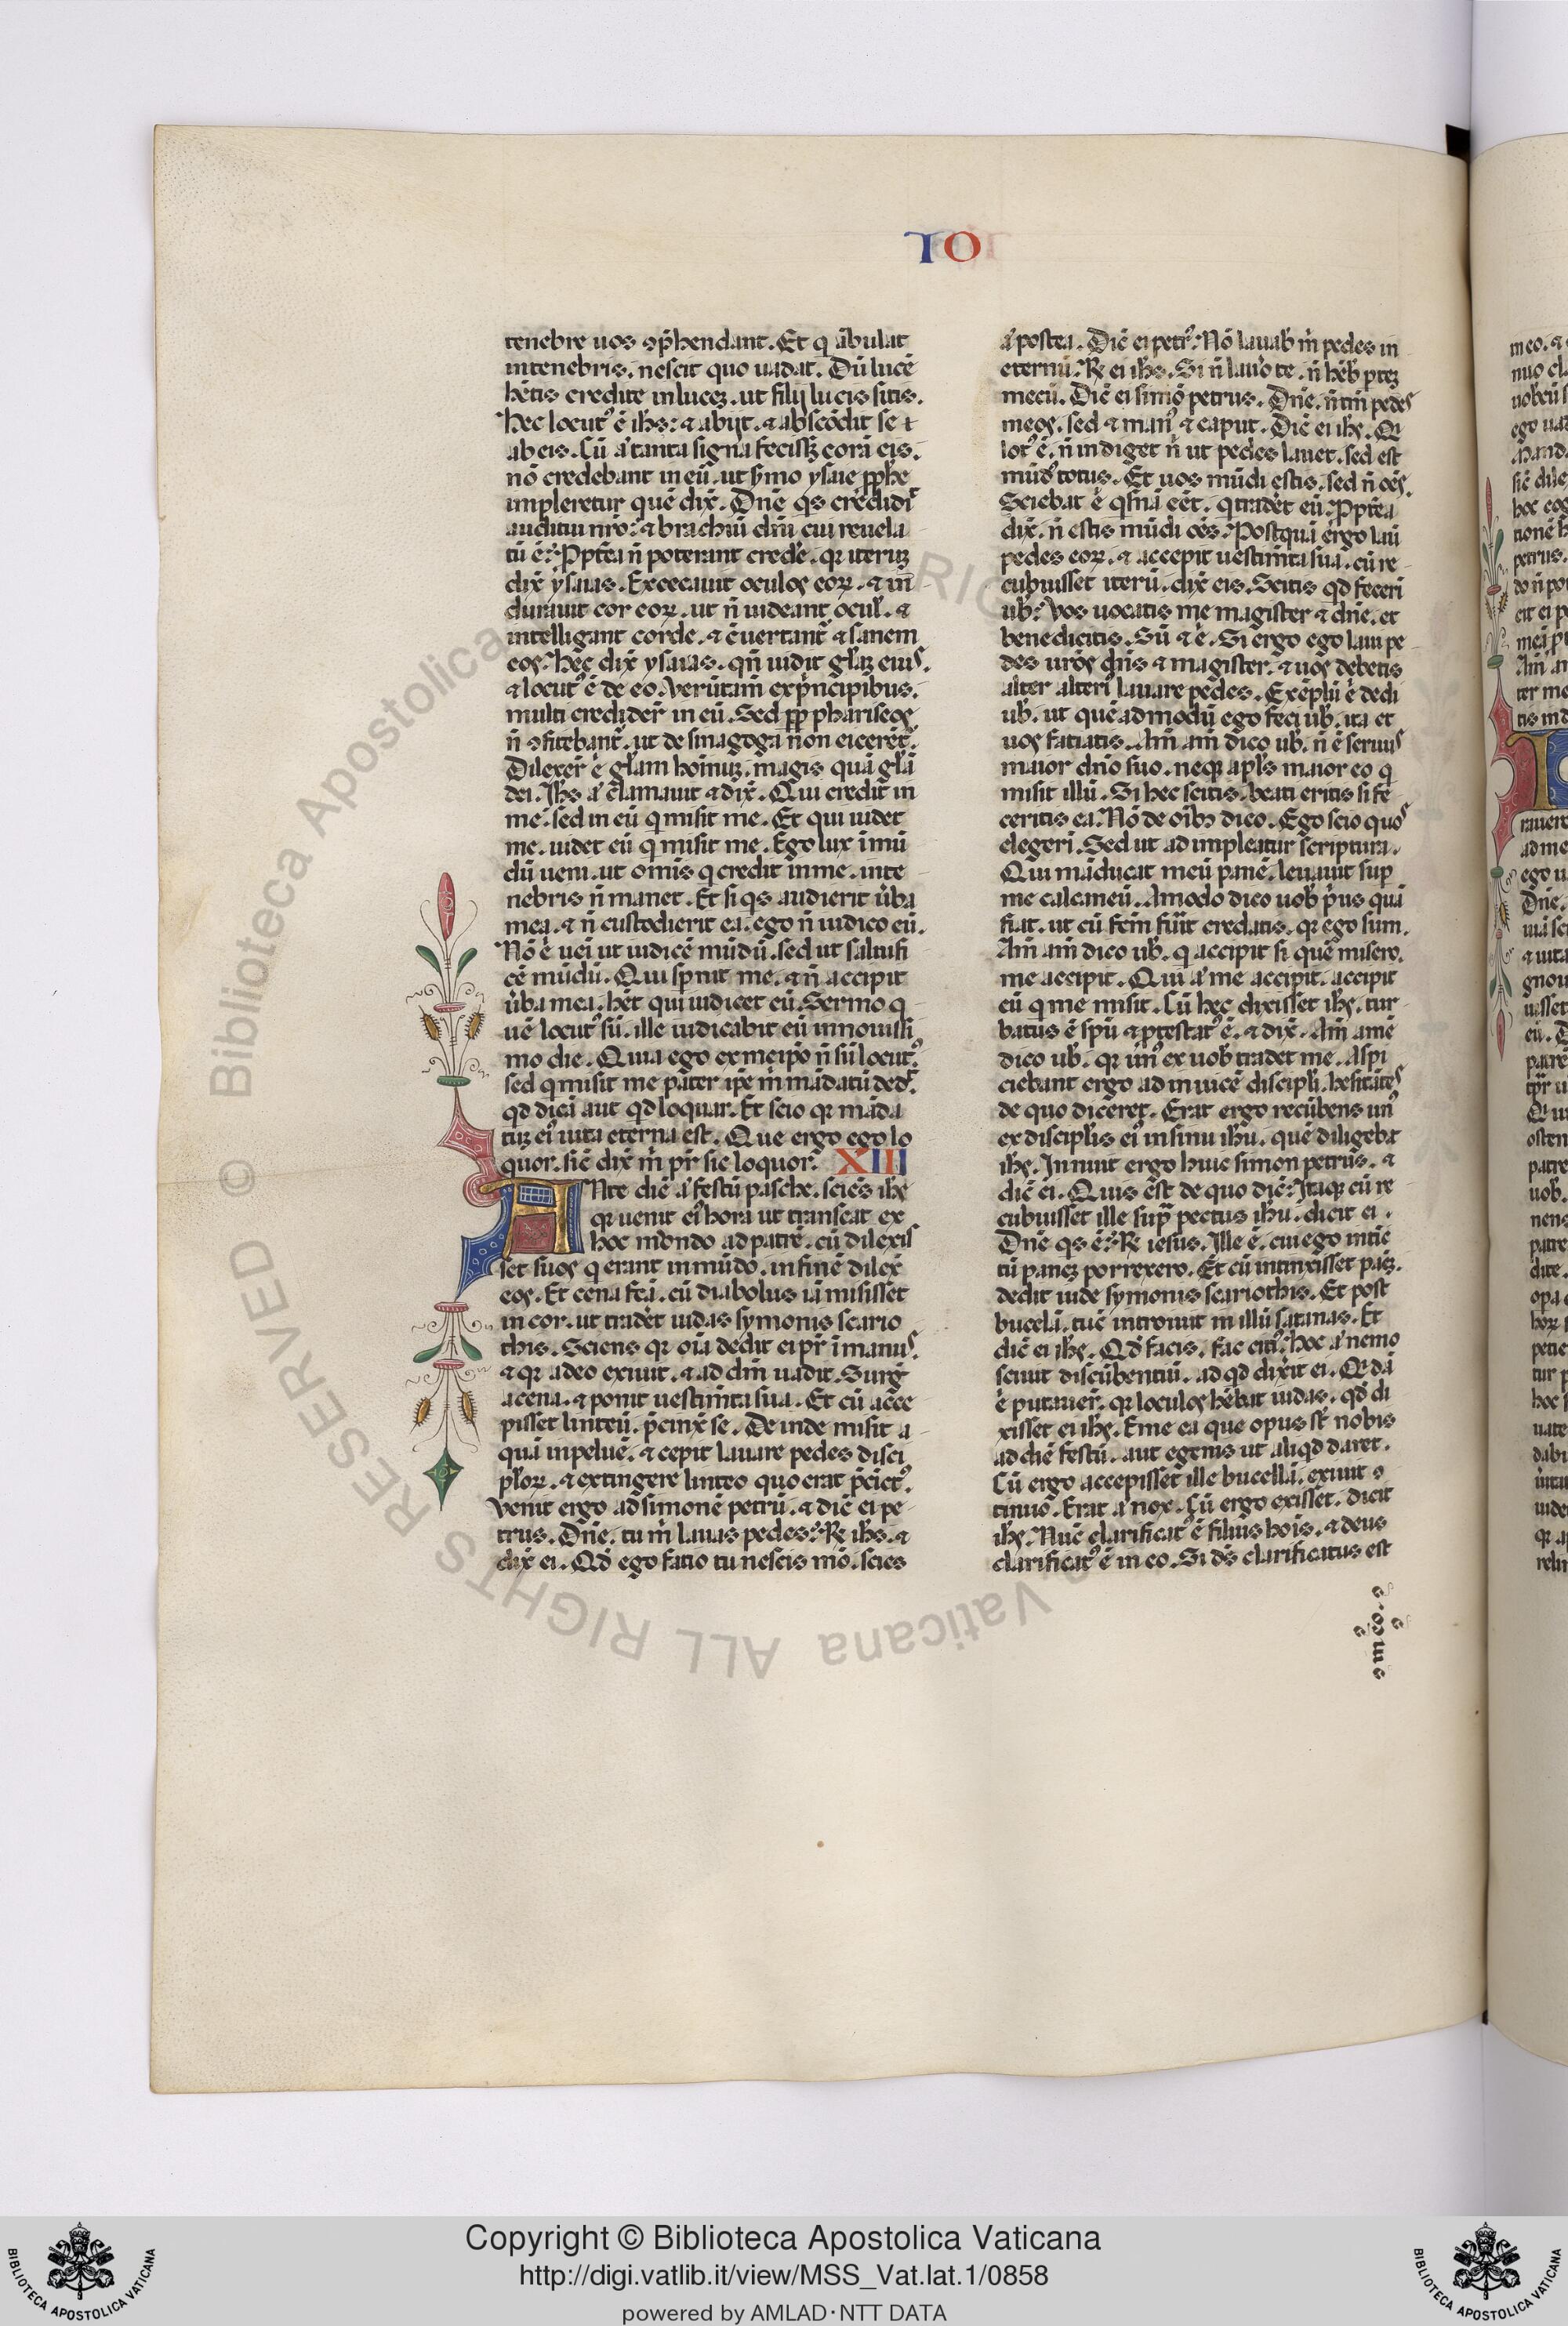 IO
tenebre uos ꝯp̄hendant. Et q ābulat
intenebris. nescit quo uadat. Dū lucē
hētis credite in lucez. ut filij lucis sitis.
hec locut᾽ ē ihs: ⁊ abijt. ⁊ abscōdit se
ab eis. Cū aͥ tanta signa fecissꝫ corā eis.
nō credebant in eū. ut ẜmo ysaie ꝓphe
impleretur quē dix̄. Dn̄e qs crēdidi
auditui nr̄o: ⁊ brachiū dn̄i cui reuela
tū ē: Ppt̄ea n̄ poterant credē. qꝛ iteruꝫ
dix̄ ysaias. Excecauit oculos eoꝝ. ⁊ in
durauit cor eoꝝ. ut n̄ uideant ocul̄. ⁊
intelligant corde. ⁊ ꝯuertant̄ ⁊ sanem
eos. hec dix̄ ysaias. qn̄ uidit gl̄aꝫ eius.
⁊ locut᾽ ē de eo. Verūtam̄ ex p̄ncipibus.
multi credider̄ in eū. Sed ꝓp phariseos
n̄ ꝯfitebant̄. ut de sinagoga non eicerēt̄.
Dilexer̄ ē gl̄am hoīnuꝫ. magis quā gl̄ā
dei. Ihs aͥ clamauit ⁊ dix̄. Qui credit in
me. sed in eū q misit me. Et qui uidet
me. uidet eū q misit me. Ego lux ī mū
dū ueni. ut omīs q credit in me. in te
nebris n̄ manet. Et si qs audierit ūba
mea. ⁊ n̄ custodierit ea. ego n̄ iudico eū.
Nō ē uēi ut iudicē mūdū. sed ut saluifi
cē mūdū. Qui sp̄nit me. ⁊ n̄ accipit
ūba mea. hēt qui iudicet eū. Sermo q
uē locut᾽ sū. ille iudicabit eū in nouissi
mo die. Quia ego ex meip̄o n̄ sū locut᾽
sed q misit me pater ip̄e m̄ mādatū ded᾽
qd dicā aut qd loquar. Et scio qꝛ māda
tuꝫ ei᾽ uita eterna est. Que ergo ego lo
quor. sic̄ dix̄ m̄ pr̄ sic loquor. XIII
ANte diē aͥ festū pasche. sciēs ihs
qꝛ uenit ei᾽ hora ut transeat ex
hoc mondo ad patrē. cū dilexis
set suos q erant in mūdo. in finē dilex̄
eos. Et cena fc̄ā. cū diabolus iā misisset
in cor. ut tradēt iudas symonis scario
this. Sciens qꝛ oīa dedit ei pr̄ ī manus.
⁊ qꝛ a deo exiuit. ⁊ ad dm̄ uadit. Surḡ
a cena. ⁊ ponit uestim̄ta sua. Et cū acce
pisset linteū. p̄cinx̄ se. De inde misit a
quā in peluē. ⁊ cepit lauare pedes disci
pl̄oꝝ. ⁊ extingere linteo quo erat p̄cict᾽.
Venit ergo ad simonē petrū. ⁊ dic̄ ei pe
trus. Dn̄e. tu m̄ lauas pedes: R̄ ihs. ⁊
dix̄ ei. Qd ego fatio tu nescis mō. scies
aͥ postea. Dic̄ ei petr᾽. Nō lauab̄ m̄ pedes in
eternū. R̄ ei ihs. Si n̄ lauo te. n̄ hēb ptez
mecū. Dic̄ ei simō petrus. Dn̄e. n̄ tm̄ pedes
meos. sed ⁊ man᾽ ⁊ caput. Dic̄ ei ihs. Q
lot᾽ ē. n̄ indiget n̄ ut pedes lauet. sed est
mūd᾽ totus. Et uos mūdi estis. sed n̄ oēs.
Sciebat ē qsnā eēt. q tradēt eū. Ppt̄ea
dix̄. n̄ estis mūdi oēs. Postquā ergo laū
pedes eoꝝ. ⁊ accepit uestim̄ta sua. cū re
cubuisset iterū. dix̄ eis. Scitis qd feceri
ub̄: Vos uocatis me magister ⁊ dn̄e. et
bene dicitis. Sū ⁊ ē. Si ergo ego laui pe
des ur̄os dn̄s ⁊ magister. ⁊ uos debetis
alter alteri᾽ lauare pedes. Exēplū ē dedi
ub̄. ut quēadmodū ego feci ub̄. ita et
uos fatiatis. Am̄ am̄ dico ub̄. n̄ ē seruus
maior dn̄o suo. neqꝫ apl̄s maior eo q
misit illū. Si hec scitis. beati eritis si fe
ceritis ea. Nō de oībꝫ dico. Ego scio quos
elegeri. Sed ut adimpleatur scriptura.
Qui māducat meū panē. leuauit sup
me calcaneū. Amodo dico uob̄ p̄us quā
fiat. ut cū fcm̄ fūit credatis. qꝛ ego sum.
Am̄ am̄ dico ub̄. q accipit si quē misero.
me accipit. Qui aͥ me accipit. accipit
eū q me misit. Cū hec dixisset ihs. tur
batus ē spū ⁊ ptestat᾽ ē. ⁊ dix̄. Am̄ amē
dico ub̄. qꝛ un᾽ ex uob̄ tradet me. Aspi
ciebant ergo ad inuicē discipl̄i. hesitātes
de quo diceret. Erat ergo recūbens un᾽
ex discipl̄is ei᾽ in sinu ihu. quē diligebat
ihs. Innuit ergo huic simon petrus. ⁊
dic̄ ei. Quis est de quo dic̄: Itaqꝫ cū re
cubuisset ille supra pectus ihu. dicit ei.
Dn̄e qs ē: R̄ iesus. Ille ē. cui ego intic̄
tū panez porrexero. Et cū intinxisset paēz.
dedit iude symonis scariothis. Et post
bucelā. tūc introiuit in illū satanas. Et
dic̄ ei ihs. Qd facis. fac citi᾽. hoc aͥ nemo
sciuit discūbentiū. ad qd dixit ei. Qdā
ē putauer̄. qꝛ loculos hēbat iudas. qd di
xisset ei ihs. Eme ea que opus sr̄ nobis
ad diē festū. aut egenis ut aliqd daret.
Cū ergo accepisset ille bucellā. exiuit ꝯ
tinuo. Erat aͥ nox. Cū ergo exisset. dicit
ihs. Nūc clarificat᾽ ē filius hoīs. ⁊ deus
clarificat᾽ ē in eo. Si ds̄ clarificatus est
in eo. ⁊
Copyright © Biblioteca Apostolica Vaticana
http://digi.vatlib.it/view/MSS_Vat.lat.1/0858
powered by AMLAD·NTT DATA
BIBLIOTECA APOSTOLICA VATICANA
BIBLIOTECA APOSTOLICA VATICANA
© Biblioteca Apostolica Vaticana ALL RIGHTS RESERVED